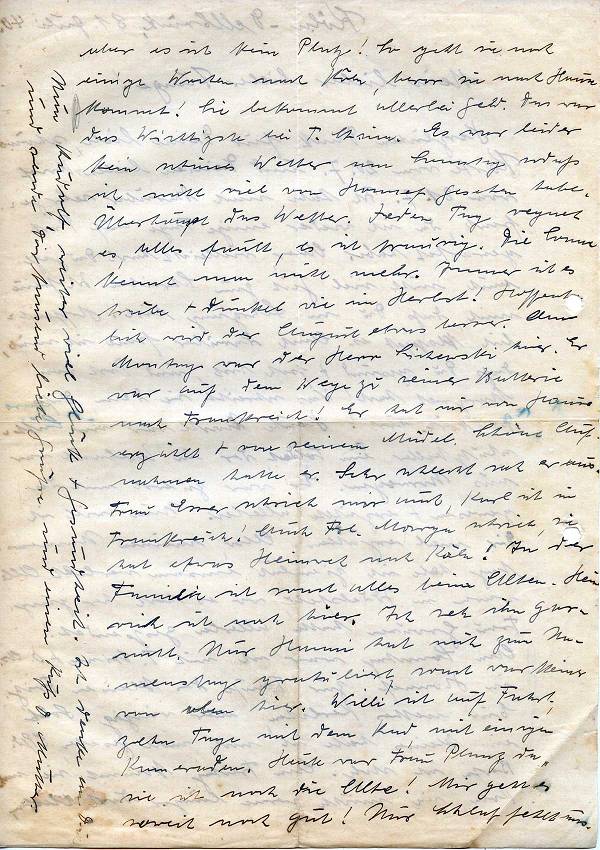 aber es ist kein Platz! So geht sie noch
einige Wochen nach Köln, bevor sie nach Hause
kommt! Sie bekommt allerlei Geld. Das war
das Wichtigste bei T. Es war leider
kein schönes Wetter am Sonntag, sodaß
ich nicht viel von Honnef gesehen habe.
Überhaupt das Wetter. Jeden Tag regnet
es, alles fault, es ist traurig. Die Sonne
kennt man nicht mehr. Immer ist es
trübe + dunkel wie im Herbst! Hoffent-
lich wird der August etwas besser. Am
Montag war der Herr hier. Er
war auf dem Wege zu seiner Batterie
nach Frankreich! Er hat mir von Hause
erzählt + von seinem Mädel. Schöne Auf-
nahmen hatte er. Sehr schlecht sah er aus.
Frau Esser schrieb mir auch, Karl ist in
Frankreich! Auch Frl. schrieb, sie
hat etwas Heimweh nach Köln! In der
Familie ist sonst alles beim Alten. Hein-
rich ist noch hier. Ich seh ihn gar-
nicht. Nur Hanni hat mich zum Na-
menstag gratuliert, sonst war keiner
von hier. Willi ist auf Fahrt,
zehn Tage mit dem Rad, mit einigen
Kameraden. Heute war Frau da,
sie ist noch die Alte! Mir geht es
soweit noch gut! Nur
Nun Rudolf, weiter viel Glück + Gesundheit. Ich denke an Dich
und sende Dir tausend liebe Grüße und einen Kuß D. Mutter